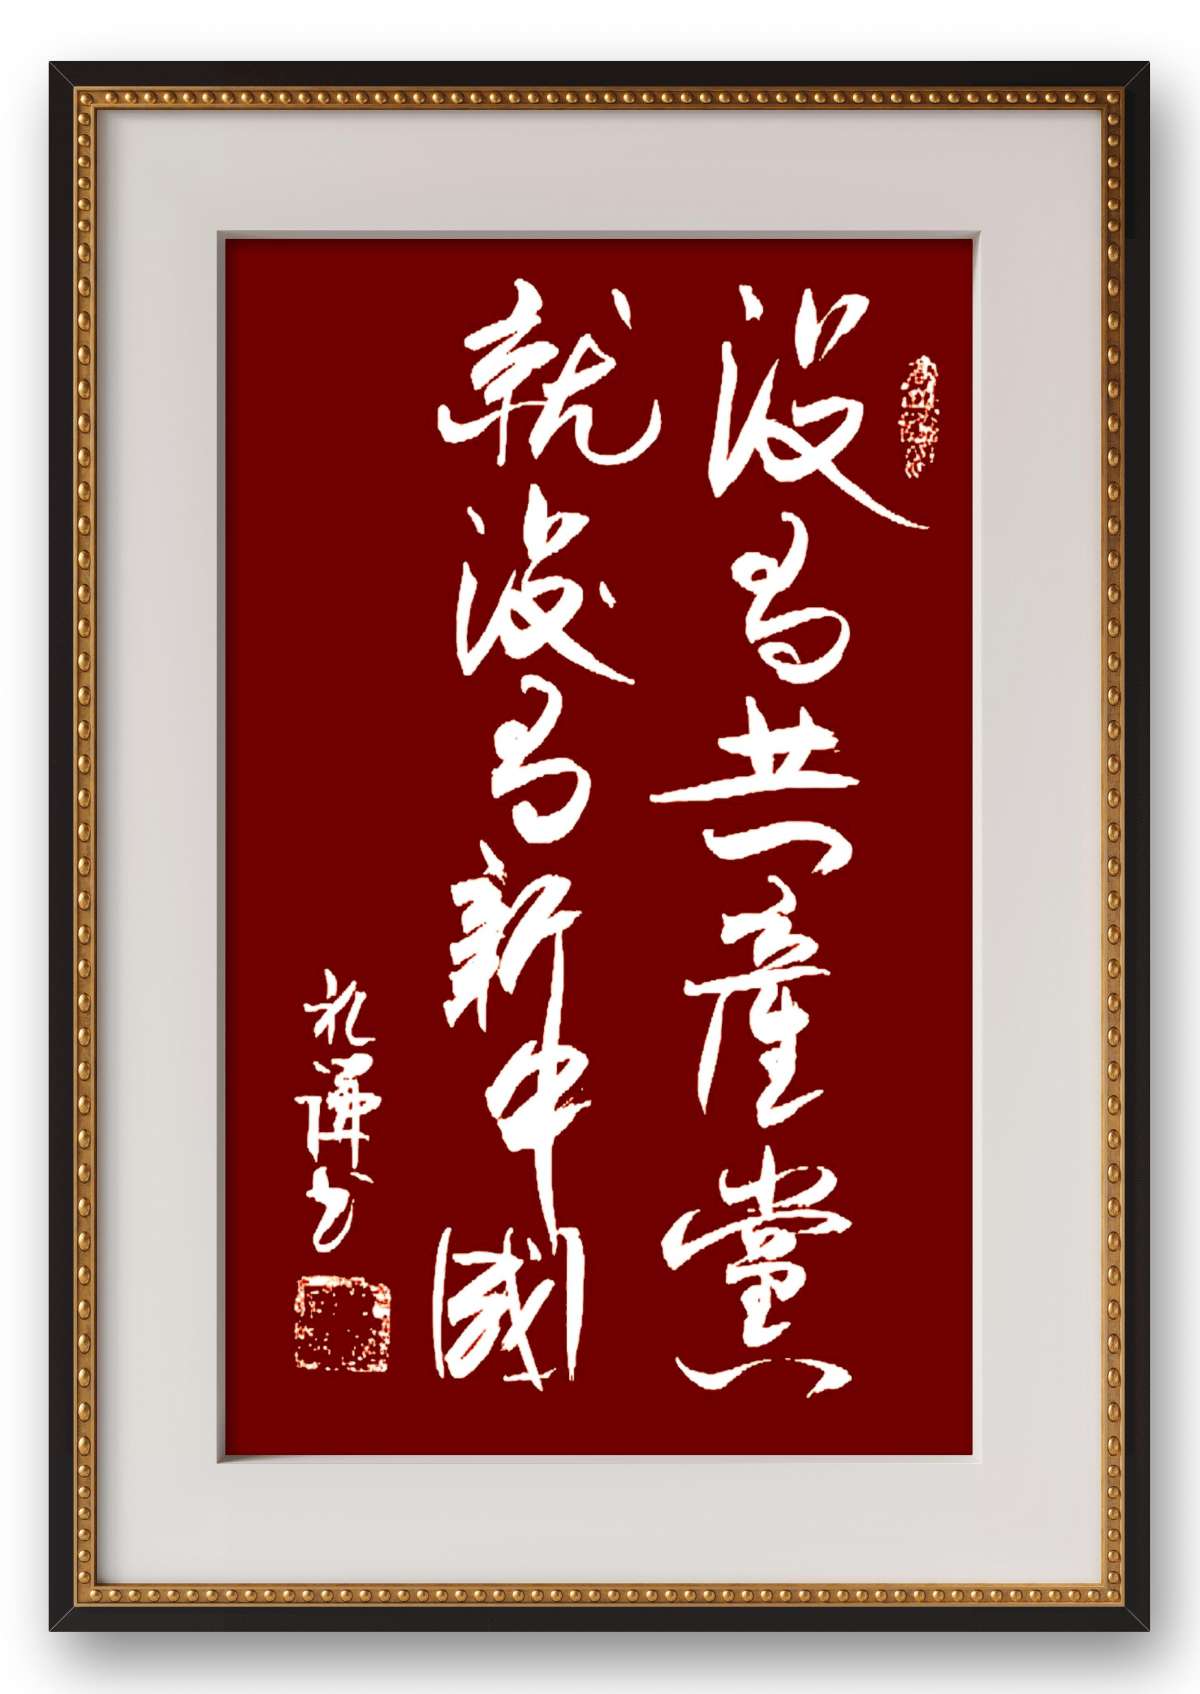 没有共產黨
就没有新中國
礼谦书